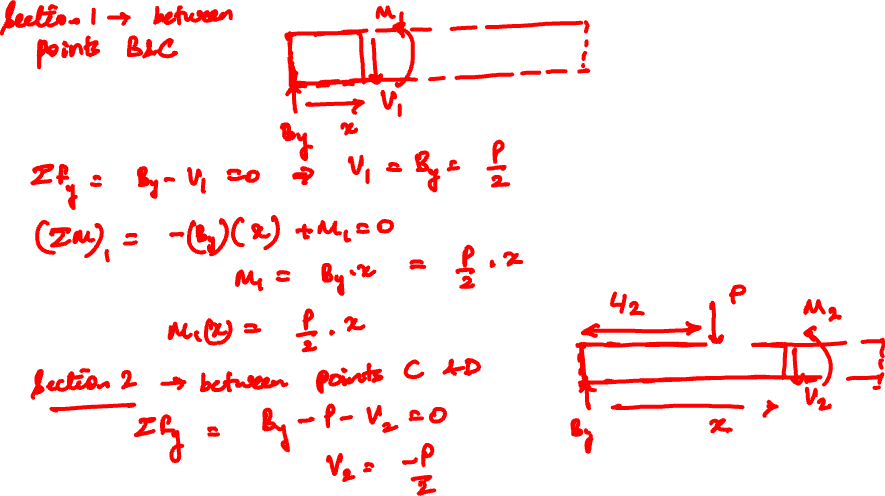 Section 1 → between
points B&C
M₁
V₁
By
x
ΣFy = By - V₁ = 0 ⇒ V₁ = By = P/2
(ΣM)₁ = -(By)(x) + M₁ = 0
M₁ = By·x = P/2 · x
M₁(x) = P/2 · x
Section 2 → between points C & D
ΣFy = By - P - V₂ = 0
V₂ = -P/2
L/2
P
M₂
V₂
By
x